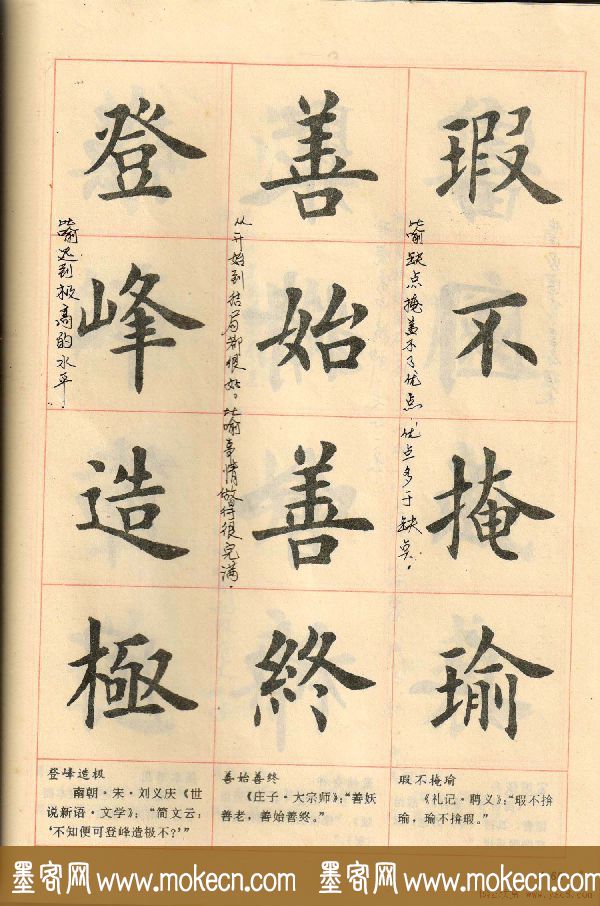 瑕不掩瑜
比喻缺点掩盖不了优点,优点多于缺点。
善始善終
从开始到结局都很好。比喻事情做得很完满。
登峰造極
比喻达到极高的水平。
登峰造极
南朝·宋·刘义庆《世
说新语·文学》:“简文云:
‘不知便可登峰造极不?’”
善始善终
《庄子·大宗师》:“善妖
善老,善始善终。”
瑕不掩瑜
《礼记·聘义》:“瑕不揜
瑜,瑜不揜瑕。”
墨客网 www.mokecn.com 墨客网 www.mokecn.com